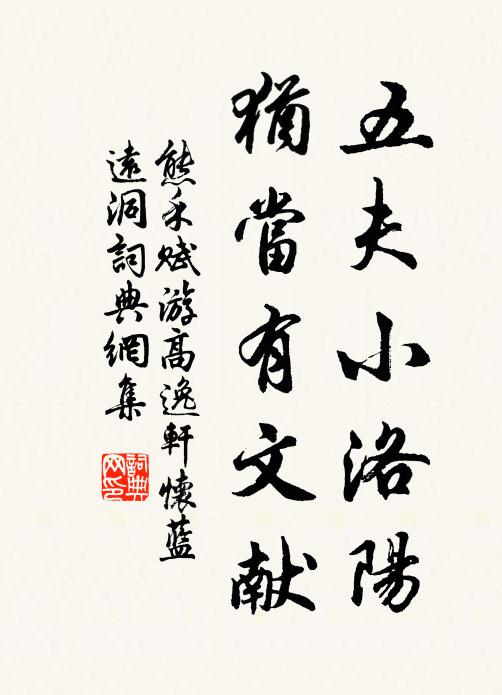 五夫小洛陽
猶當有文献
熊禾赋游高逸軒懷藍
遠洞詞典網集
詞典
网印